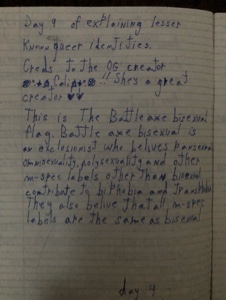 Day 9 of explaining lesser
Known queer identities.
Creds to the OG creator
Calipso!! She's a great
creator
This is The Battleaxe bisexual
flag. Battle axe bisexual is
an exclusionist who belives pansexual
omnisexuality, polysexuality and other
m-spec labels other than bisexual
contribute to biphobia and transphobia
They also belive that all m-spec
labels are the same as bisexual
day 4